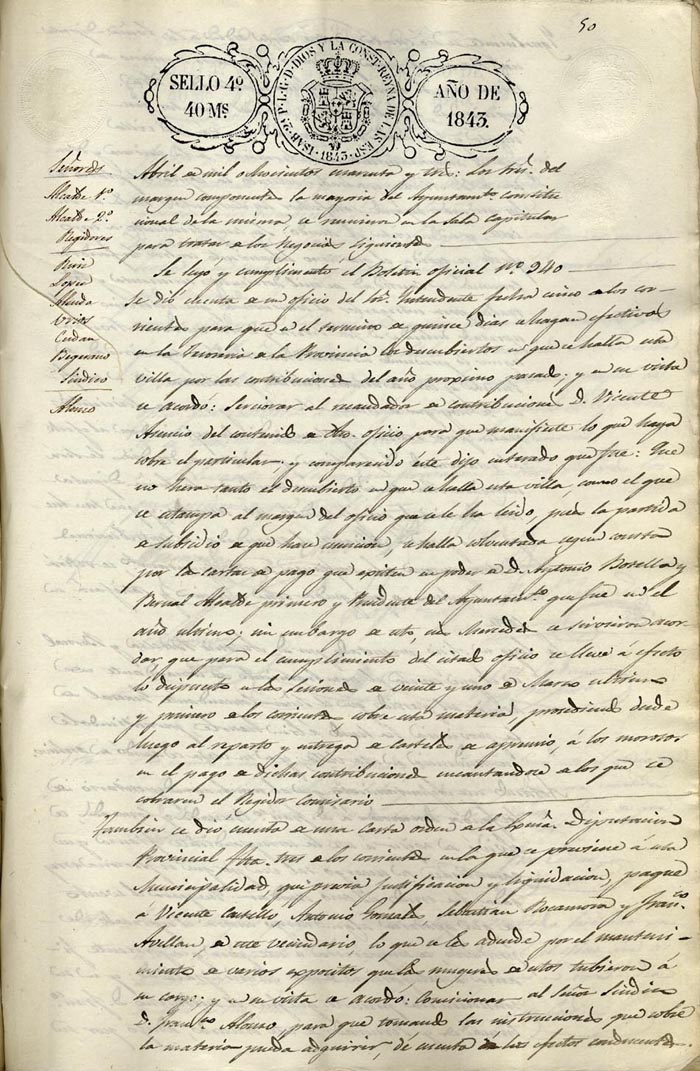 50
SELLO 4º
40 Ms
ISAB. 2ª P. L. G. D. DIOS Y LA CONST. REYNA DE LAS ESP.
1843
AÑO DE
1843.
Señores
Alcalde 1º
Alcalde 2º
Regidores
Ruiz
Lopez
Cerdan
Sindico
Alonso
Abril de mil ochocientos cuarenta y tres: Los Sres. del
margen componentes la mayoria del Ayuntamto. constitu
cional de la misma se reunieron en la Sala capitular
para tratar de los Negocios siguientes
Se leyó y cumplimentó el Boletin oficial Nº 940
Se dió cuenta de un oficio del Sr. Intendente fecha cinco de los cor-
rientes para que en el termino de quince dias se hagan efectivos
en la Tesoreria de la Provincia los descubiertos en que se halla esta
villa por las contribuciones del año proximo pasado; y en su vista
se acordó: al recaudador de contribuciones D. Vicente
Asencio del contenido de dho. oficio para que manifieste lo que haya
sobre el particular; y comparecido este dijo enterado que fue: Que
no hera tanto el descubierto en que se halla esta villa, como el que
se estampa al margen del oficio que se le ha leido, pues la partida
de subsidio de que hace mencion, se halla solventada segun consta
por las cartas de pago que existen en poder de D. Antonio Botella y
Bernal Alcalde primero y Presidente del Ayuntamto. que fue en el
año ultimo; sin embargo de esto, sus Mercedes se sirvieron acor-
dar, que para el cumplimiento del citado oficio se lleve á efecto
lo dispuesto en las Sesiones de veinte y uno de Marzo ultimo
y primero de los corrientes sobre esta materia, procediendo desde
luego al reparto y entrega de carteles de apremio, á los morosos
en el pago de dichas contribuciones encantandose de los que se
cobraren el Regidor comisario
Tambien se dió cuenta de una carta orden de la Excma. Diputacion
Provincial fha. tres de los corrientes en la que se previene á esta
Municipalidad, que previa justificacion y liquidacion, pague
á Vicente Castelló, Antonio Gonzalez, Sebastian Rocamora y Franco.
Avillan, de este vecindario, lo que se les adeude por el manteni-
miento de varios expositos que las mugeres de estos tubieron á
su cargo; y en su vista se acordó: Comisionar al Señor Sindico
D. Franco. Alonso, para que tomando las instrucciones que sobre
la materia pueda adquirir, dé cuenta á los efectos conducentes.